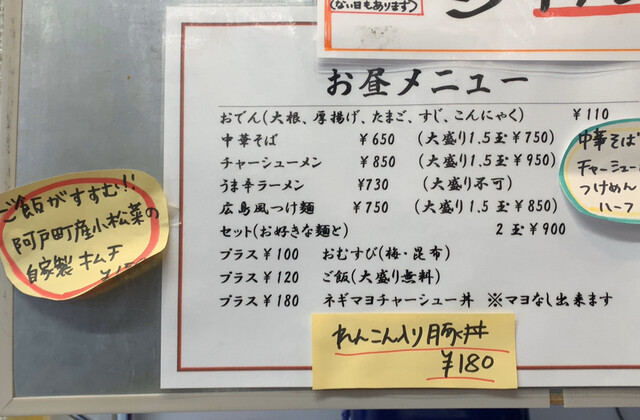 (ない日もあります)
お昼メニュー
おでん(大根、厚揚げ、たまご、すじ、こんにゃく) ¥110
中華そば ¥650 (大盛り1.5玉¥750)
チャーシューメン ¥850 (大盛り1.5玉¥950)
うま辛ラーメン ¥730 (大盛り不可)
広島風つけ麺 ¥750 (大盛り1.5玉¥850)
2玉¥900
セット(お好きな麺と)
プラス¥100 おむすび(梅・昆布)
プラス¥120 ご飯(大盛り無料)
プラス¥180 ネギマヨチャーシュー丼 ※マヨなし出来ます
れんこん入り豚丼
¥180
ご飯がすすむ!!
阿戸町産小松菜の
自家製キムチ
中華そば
チャーシュー
つけめん
ハーフ